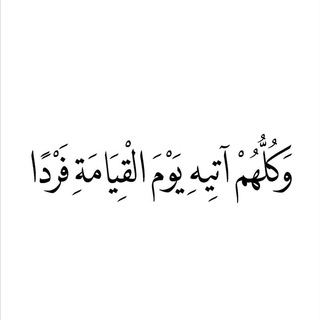 وَكُلُّهُمْ آتِيهِ يَوْمَ الْقِيَامَةِ فَرْدًا